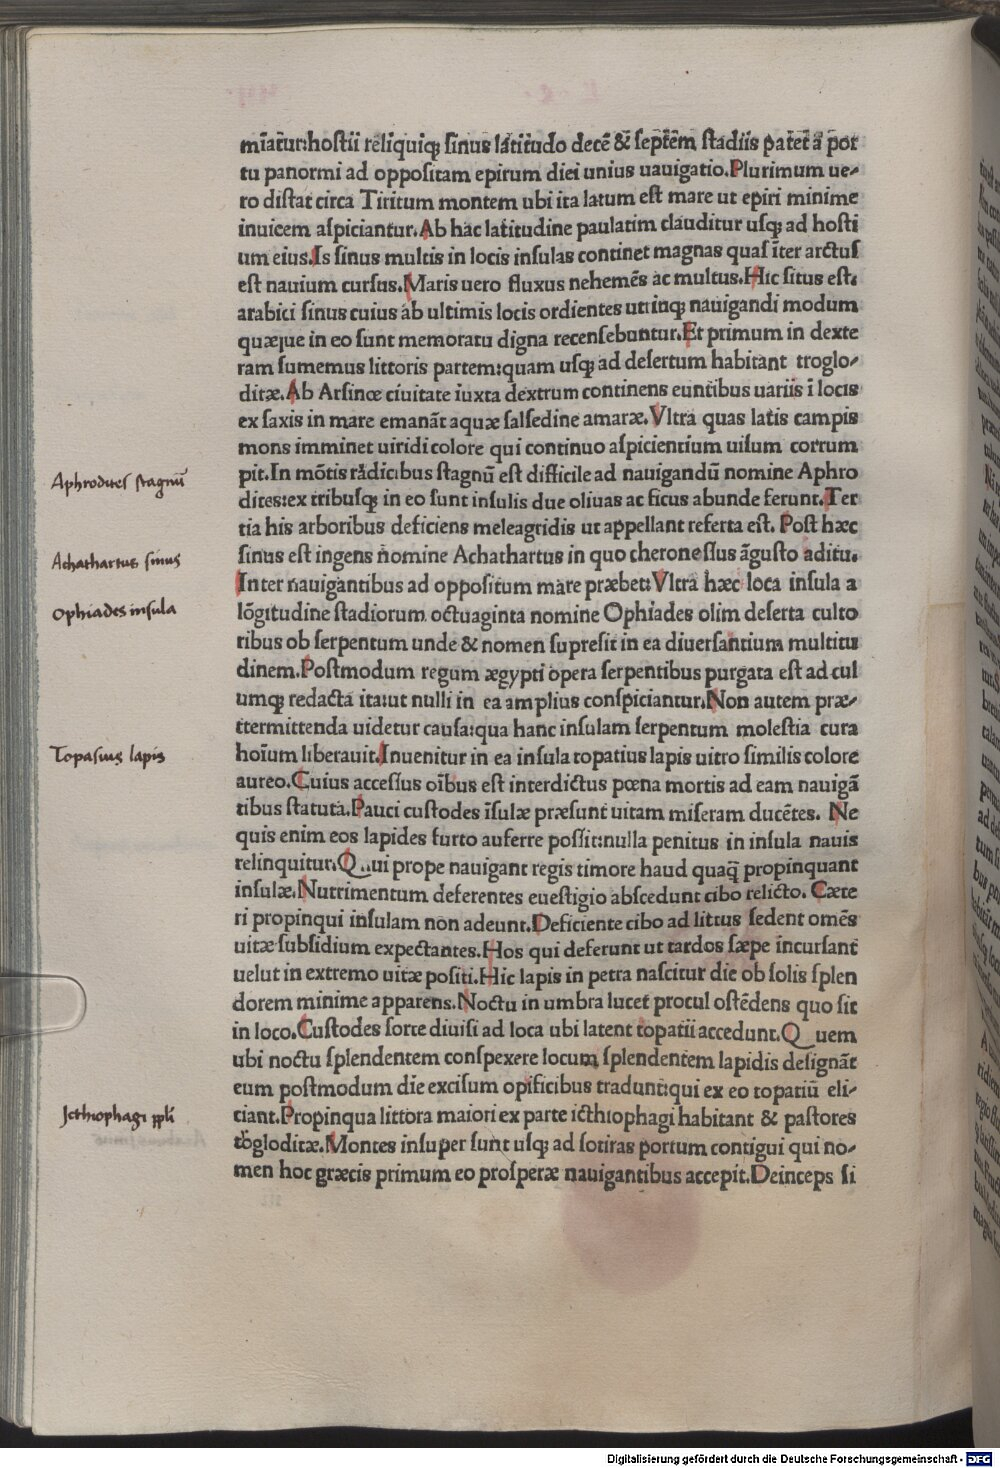 mīat̄ur:hostii reliquiq; sinus latitudo decē & septem stadiis patet a por
tu panormi ad oppositam epirum diei unius uauigatio.Plurimum ue-
ro distat circa Tiritum montem ubi ita latum est mare ut epiri minime
inuicem aspiciantur.Ab hac latitudine paulatim clauditur usq; ad hosti
um eius.Is sinus multis in locis insulas continet magnas quas īter arctus
est nauium cursus.Maris uero fluxus nehemēs ac multus.Hic situs est.
arabici sinus cuius ab ultimis locis ordientes utrinq; nauigandi modum
quæque in eo sunt memoratu digna recensebuntur.Et primum in dexte
ram sumemus littoris partem:quam usq; ad desertum habitant troglo-
ditæ.Ab Arsinoe ciuitate iuxta dextrum continens euntibus uariis ī locis
ex saxis in mare emanāt aquæ salsedine amaræ.Vltra quas latis campis
mons imminet uiridi colore qui continuo aspicientium uisum corrum
pit.In mōtis radicibus stagnū est difficile ad nauigandū nomine Aphro
dites:ex tribusq; in eo sunt insulis due oliuas ac ficus abunde ferunt.Ter
tia his arboribus deficiens meleagridis ut appellant referta est. Post hæc
sinus est ingens nomine Achathartus in quo cheronessus āgusto aditu.
Inter nauigantibus ad oppositum mare præbet:Vltra hæc loca insula a
lōgitudine stadiorum octuaginta nomine Ophiades olim deserta culto
ribus ob serpentum unde & nomen supresit in ea diuersantium multitu
dinem.Postmodum regum ægypti opera serpentibus purgata est ad cul
umq; redacta ita:ut nulli in ea amplius conspiciantur.Non autem præ-
ttermittenda uidetur causa:qua hanc insulam serpentum molestia cura
hoīum liberauit.Inuenitur in ea insula topatius lapis uitro similis colore
aureo.Cuius accessus oībus est interdictus pœna mortis ad eam nauigā
tibus statuta.Pauci custodes īsulæ præsunt uitam miseram ducētes. Ne
quis enim eos lapides furto auferre possit:nulla penitus in insula nauis
relinquitur.Qui prope nauigant regis timore haud quaq̄ propinquant
insulæ.Nutrimentum deferentes euestigio abscedunt cibo relicto. Cæte
ri propinqui insulam non adeunt.Deficiente cibo ad littus sedent omēs
uitæ subsidium expectantes.Hos qui deferunt ut tardos sæpe incursant
uelut in extremo uitæ positi.Hic lapis in petra nascitur die ob solis splen
dorem minime apparens.Noctu in umbra lucet procul ostēdens quo sit
in loco.Custodes sorte diuisi ad loca ubi latent topatii accedunt.Quem
ubi noctu splendentem conspexere locum splendentem lapidis designāt
eum postmodum die excisum opificibus tradunt:qui ex eo topatiū eli-
ciant.Propinqua littora maiori ex parte icthiophagi habitant & pastores
togloditæ.Montes insuper sunt usq; ad sotiras portum contigui qui no-
men hoc græcis primum eo prosperæ nauigantibus accepit.Deinceps si
Aphrodites stagnū
Achathartus sinus
Ophiades insula
Topasius lapis
Icthiophagi ppli
Digitalisierung gefördert durch die Deutsche Forschungsgemeinschaft - DFG